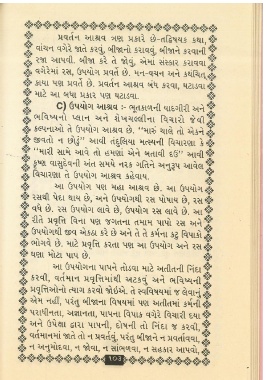 પ્રવર્તન આશ્રવ ત્રણ પ્રકારે છે-તદ્વિષયક કથા,
વાંચન વગેરે જાતે કરવું, બીજાનો કરાવવું, બીજાને કરવાની
રજા આપવી. બીજા કરે તે જોવું, એમાં સહકાર કરાવવા
વગેરેમાં રસ, ઉપયોગ પ્રવર્તે છે. મન-વચન અને કથંચિત્
કાયા પણ પ્રવર્તે છે. પ્રવર્તન આશ્રવ બંધ કરવા, ઘટાડવા
માટે આ બધા પ્રકાર પણ ઘટાડવા.
C) ઉપયોગ આશ્રવ :- ભૂતકાળની યાદગીરી અને
ભવિષ્યનો પ્લાન અને શેખચલ્લીના વિચારો જેવી
કલ્પનાઓ તે ઉપયોગ આશ્રવ છે. “મારું ચાલે તો એકને
જીવતો ન છોડું” આવી તંદુલિયા મત્સ્યની વિચારણા કે
“મારી સામે આવે તો હમણાં એને બતાવી દઉં” આવી
કૃષ્ણ વાસુદેવની અંત સમયે નરક ગતિને અનુરૂપ આવેલ
વિચારણા તે ઉપયોગ આશ્રવ કહેવાય.
આ ઉપયોગ પણ મહા આશ્રવ છે. આ ઉપયોગ
રસથી પેદા થાય છે, અને ઉપયોગથી રસ પોષાય છે, રસ
વધે છે. રસ ઉપયોગ લાવે છે, ઉપયોગ રસ લાવે છે. આ
રીતે પ્રવૃત્તિ વિના પણ જગતના તમામ પાપો રસ અને
ઉપયોગથી જીવ એકઠા કરે છે અને તે તે કર્મના કટુ વિપાકો
ભોગવે છે. માટે પ્રવૃત્તિ કરતા પણ આ ઉપયોગ અને રસ
ઘણા મોટા પાપ છે.
આ ઉપયોગના પાપને તોડવા માટે અતીતની નિંદા
કરવી, વર્તમાન પ્રવૃત્તિમાંથી અટકવું અને ભવિષ્યની
પ્રવૃત્તિઓનો ત્યાગ કરવો જોઈએ. તે સ્વવિષયમાં જ લેવાનું
એમ નહીં, પરંતુ બીજાના વિષયમાં પણ અતીતમાં કર્મની
પરાધીનતા, અજ્ઞાનતા, પાપના વિપાક વગેરે વિચારી દયા
અને ઉપેક્ષા દ્વારા પાપની, દોષની તો નિંદા જ કરવી,
વર્તમાનમાં જાતે તો ન પ્રવર્તવું, પરંતુ બીજાને ન પ્રવર્તાવવા,
ન અનુમોદવા, ન જોવા, ન સાંભળવા, ન સહકાર આપવો,
103